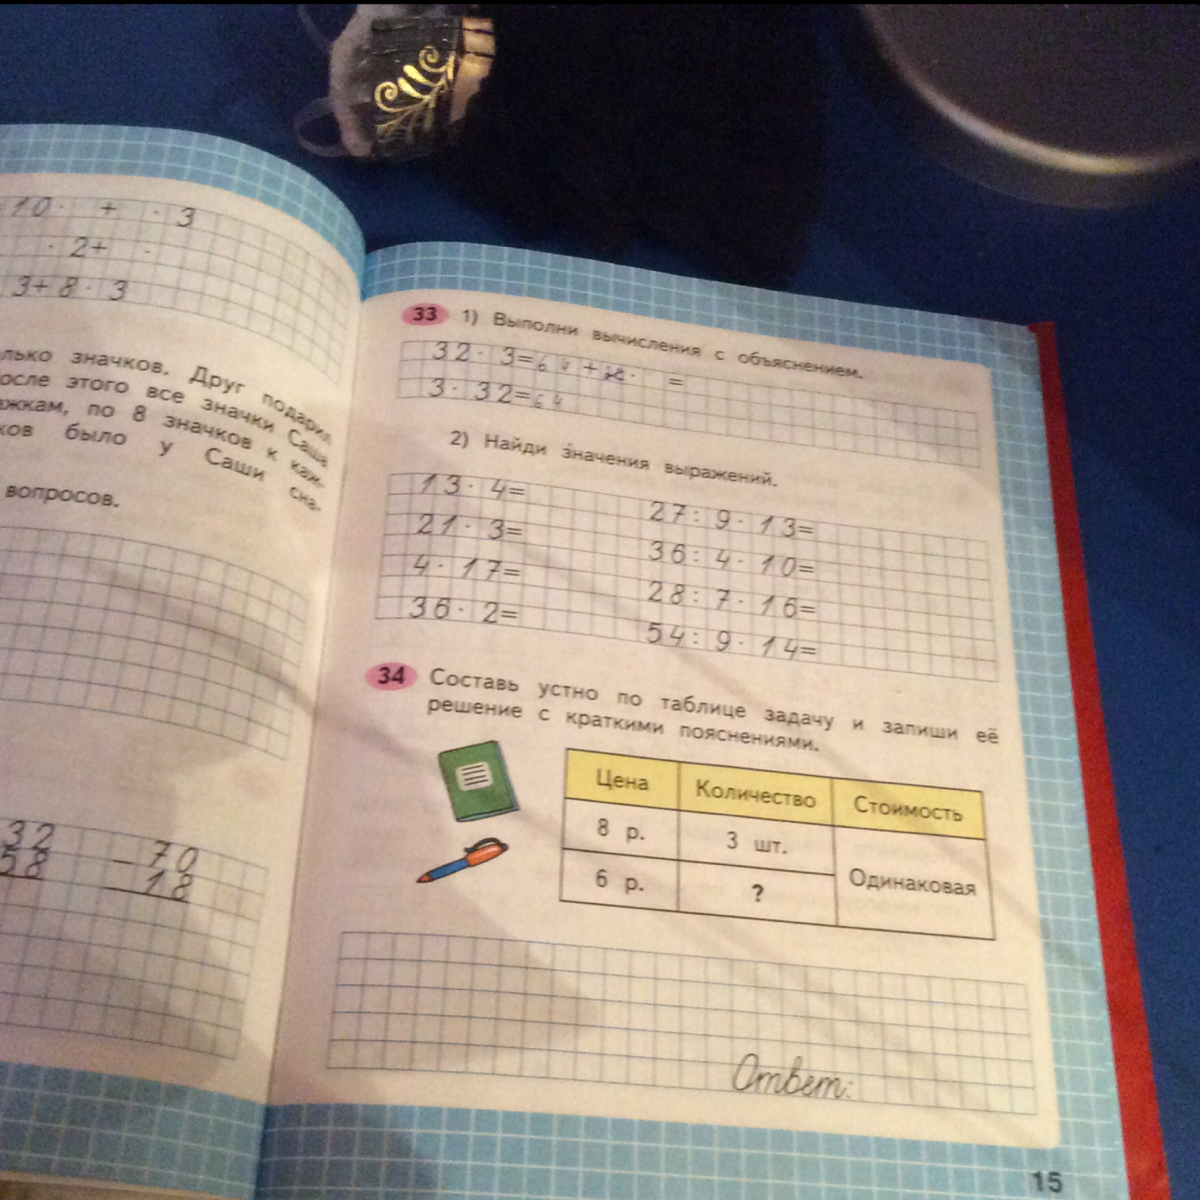 10· + · 3
· 2+ ·
3+8· 3
значков. Друг подарил
после этого все значки Саша
по 8 значков к каж-
было у Саши сна-
вопросов.
32
58
– 70
18
33 1) Выполни вычисления с объяснением.
32· 3=64+ · =
3· 32=64
2) Найди значения выражений.
13· 4= 27: 9· 13=
21· 3= 36: 4· 10=
4· 17= 28: 7· 16=
36· 2= 54: 9· 14=
34 Составь устно по таблице задачу и запиши её
решение с краткими пояснениями.
Цена Количество Стоимость
8 р. 3 шт. Одинаковая
6 р. ?
Ответ:
15